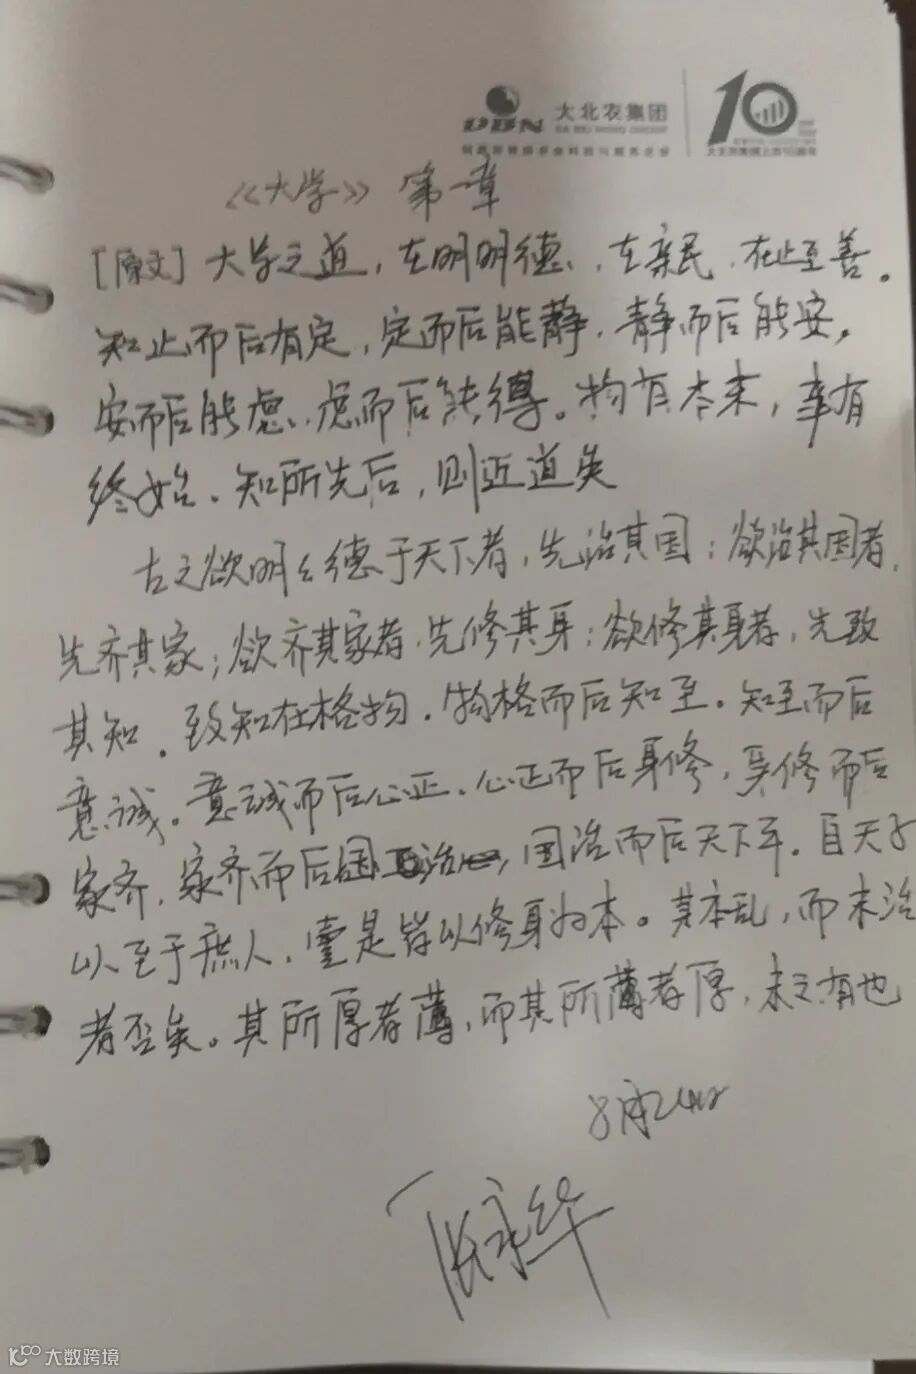 DBN 大北农集团
DA BEI NONG GROUP
10
《大学》 第一章
[原文] 大学之道，在明明德，在亲民，在止至善。
知止而后有定，定而后能静，静而后能安，
安而后能虑，虑而后能得。物有本末，事有
终始。知所先后，则近道矣
古之欲明々德于天下者，先治其国；欲治其国者，
先齐其家；欲齐其家者，先修其身；欲修其身者，先致
其知。致知在格物。物格而后知至。知至而后
意诚。意诚而后心正。心正而后身修，身修而后
家齐，家齐而后国治，国治而后天下平。自天子
以至于庶人，壹是皆以修身为本。其本乱，而末治
者否矣。其所厚者薄，而其所薄者厚，未之有也
大数跨境